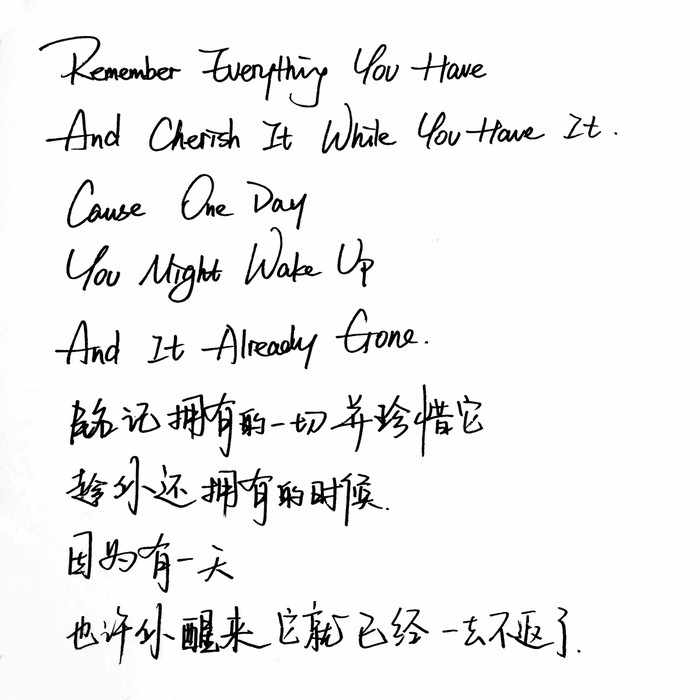 Remember Everything You Have
And Cherish It While You Have It.
Cause One Day
You Might Wake Up
And It Already Gone.
铭记拥有的一切并珍惜它
趁你还拥有的时候.
因为有一天
也许你醒来它就已经一去不返了.